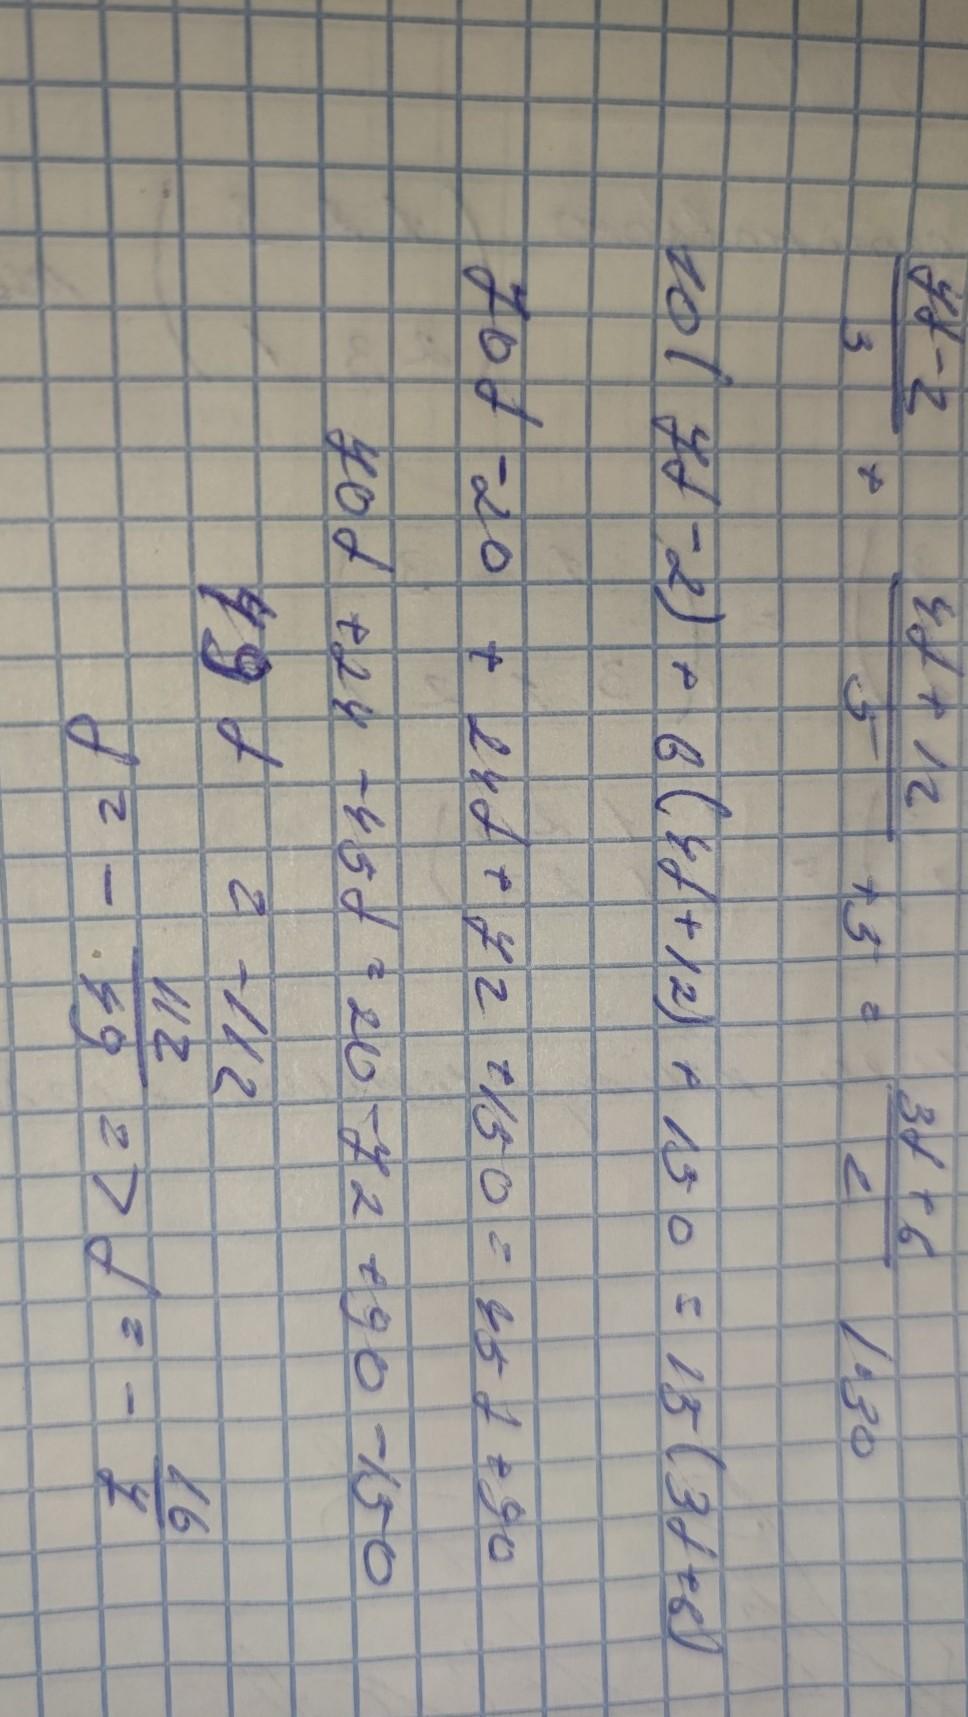 7f-2/3 + 4f+12/5 +5 = 3f+6/2 /·30
10(7f-2)+6(4f+12)+150=15(3f+6)
70f-20+24f+72+150=45f+90
70f+24-45f=20-72+90-150
49f=-112
f=-112/49 => f=-16/7